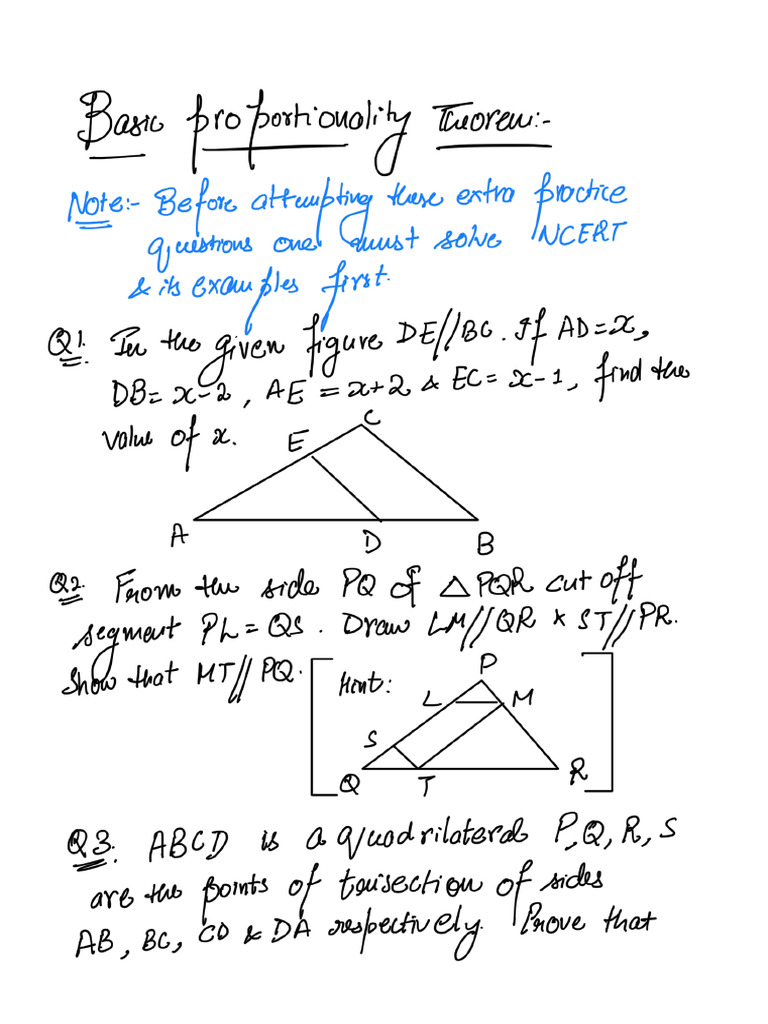 Basic proportionality Theorem:-
Note:- Before attempting these extra practice
questions one must solve NCERT
& its examples first.
Q1. In the given figure DE//BC. If AD=x,
DB= x-2, AE = x+2 & EC= x-1, find the
value of x.
C
E
A D B
Q2. From the side PQ of △PQR cut off
segment PL = QS. Draw LM//QR & ST//PR.
Show that MT// PQ.
[Hint:
P
L M
S
Q T R
]
Q3. ABCD is a quadrilateral P, Q, R, S
are the points of trisection of sides
AB, BC, CD & DA respectively. Prove that